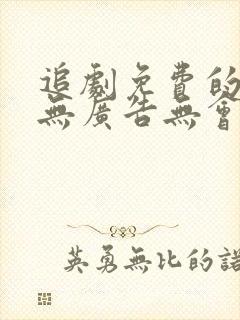 追劇免費的
無廣告無會
英勇無比的諾